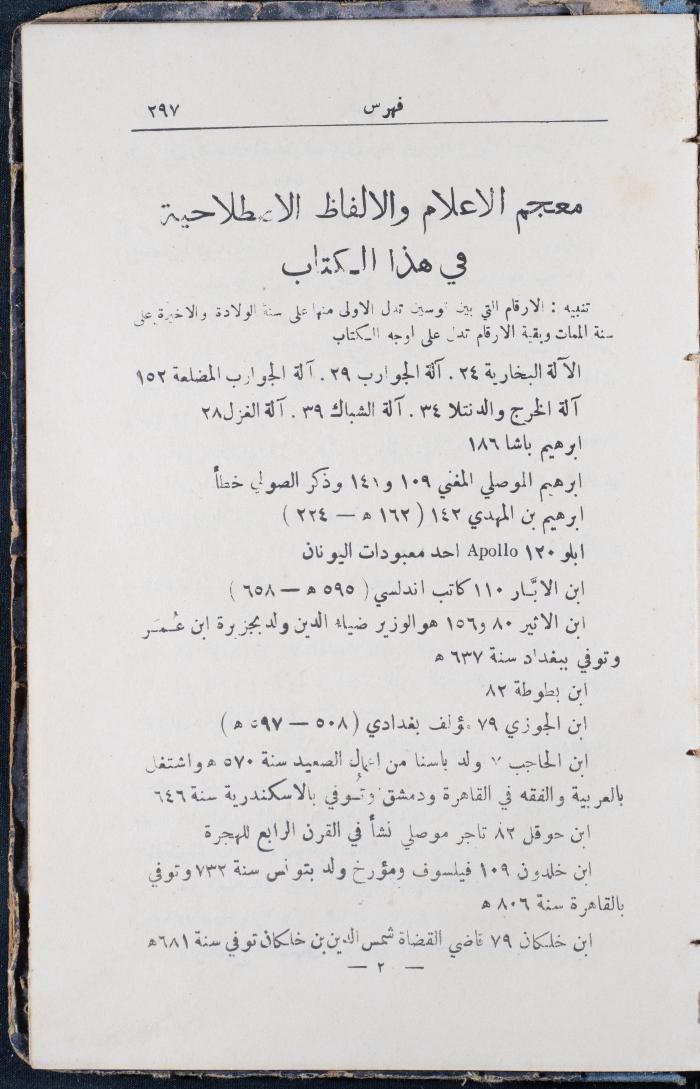 فهرس ٢٩٧
معجم الاعلام والالفاظ الاصطلاحية
في هذا الكتاب
تنبيه : الارقام التي بين قوسين تدل الاولى منها على سنة الولادة والاخيرة على
سنة الممات وبقية الارقام تدل على اوجه الكتاب
الآلة البخارية ٢٤ . آلة الجوارب ٢٩ . آلة الجوارب المضلعة ١٥٢
آلة الخرج والدنتلا ٣٤ . آلة الشباك ٣٩ . آلة الغزل ٢٨
ابرهيم باشا ١٨٦
ابرهيم الموصلي المغني ١٠٩ و١٤١ وذكر الصولي خطأ
ابرهيم بن المهدي ١٤٢ ( ١٦٢ ھ — ٢٢٤ )
ابلو ١٢٠ Apollo احد معبودات اليونان
ابن الابَّار ١١٠ كاتب اندلسي ( ٥٩٥ ھ — ٦٥٨ )
ابن الاثير ٨٠ و١٥٦ هو الوزير ضياء الدين ولد بجزيرة ابن عُمَر
وتوفي ببغداد سنة ٦٣٧ ھ
ابن بطوطة ٨٢
ابن الجوزي ٧٩ مؤلف بغدادي ( ٥٠٨ — ٥٩٧ ھ )
ابن الحاجب ولد باسنا من اعمال الصعيد سنة ٥٧٠ ھ واشتغل
بالعربية والفقه في القاهرة ودمشق وتُوفي بالاسكندرية سنة ٦٤٦
ابن حوقل ٨٢ تاجر موصلي نشأ في القرن الرابع للهجرة
ابن خلدون ١٠٩ فيلسوف ومؤرخ ولد بتونس سنة ٧٣٢ وتوفي
بالقاهرة سنة ٨٠٦ ھ
ابن خلكان ٧٩ قاضي القضاة شمس الدين بن خلكان توفي سنة ٦٨١ ھ
— ٢ —